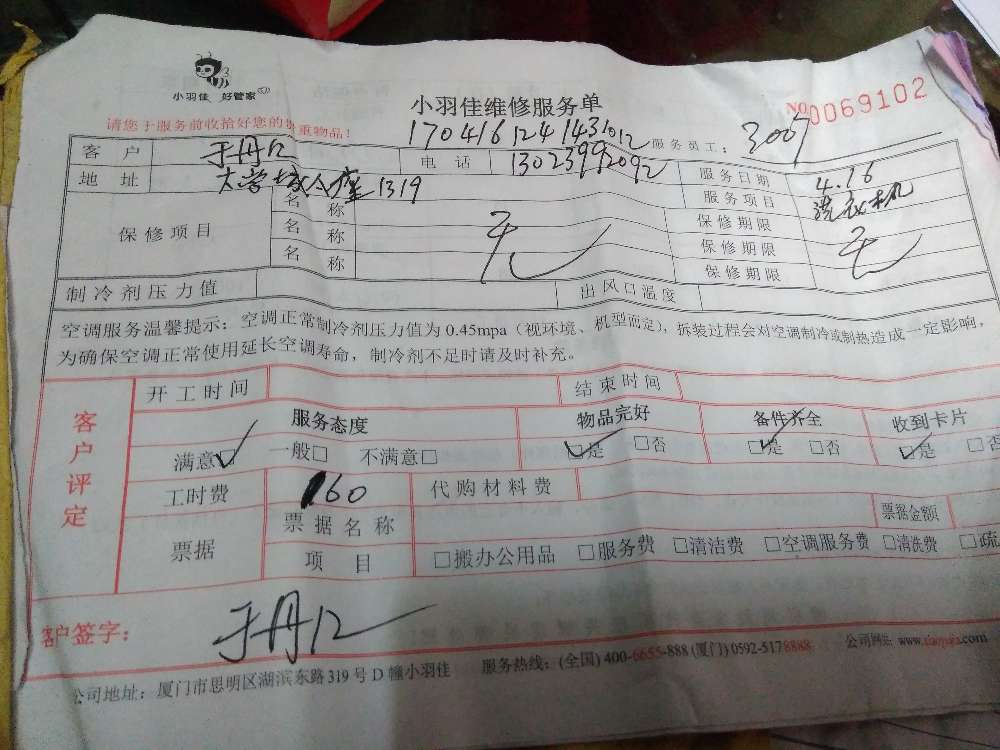 小羽佳 好管家
小羽佳维修服务单
No 0069102
请您于服务前收拾好您的贵重物品！
1704161241431012
服务员工： 3007
客户 于丹 电话 13023992092 服务日期 4.16
地址 大学城 座1319 服务项目 洗衣机
保修项目 名称 无 保修期限 无
名称 保修期限
名称 保修期限
制冷剂压力值 出风口温度
空调服务温馨提示：空调正常制冷剂压力值为0.45mpa（视环境、机型而定），拆装过程会对空调制冷或制热造成一定影响，
为确保空调正常使用延长空调寿命，制冷剂不足时请及时补充。
客户评定
开工时间 结束时间
服务态度 物品完好 备件齐全 收到卡片
满意☑ 一般□ 不满意□ ☑是 □否 ☑是 □否 ☑是 □否
工时费 160 代购材料费
票据 票据名称 票据金额
项目 □搬办公用品 □服务费 □清洁费 □空调服务费 □清洗费 □疏
客户签字： 于丹
公司地址：厦门市思明区湖滨东路319号D幢小羽佳 服务热线：(全国) 400-6655-888 (厦门) 0592-5178888 公司网站: www.xiaoyujia.com